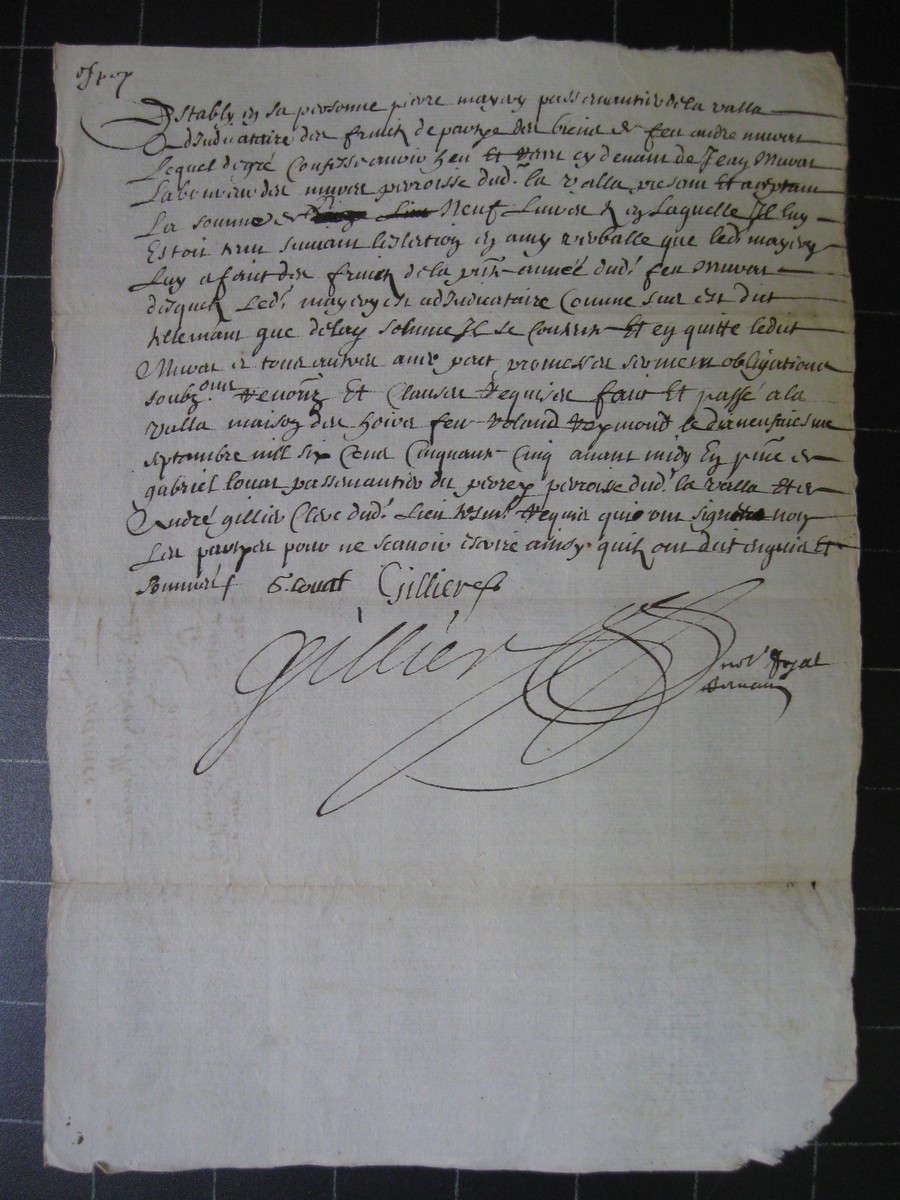 Estably en sa personne pierre mayery passemantier de la valla
adiudicataire des fruicts de partye des biens de feu andre muvat
Lequel de gré confesse avoir heu et receu cy devant de Jean Muvat
Laboureur des parroisse dud. la valla present et aceptant
La somme de Neuf Livres en Laquelle Il luy
Estoit tenu suivant en amy verballe que led. mayery
Luy a faict des fruicts de la année dud. feu Muvat
desquels Led. mayery est adiudicataire Comme sus est dict
tellemant que de lad. somme Il se contente Et en quitte ledict
Muvat et tous autres avec pact promesses sermens obligations
soubz. renon. Et Clauses requises faict Et passé a la
valla maison des hoirs feu voland Reymond le dixneufviesme
septembre mil six Cens Cinquante Cinq avant midy En pnce de
gabriel Louat passemantier du parroisse dud. la valla Et de
André gillier Clerc dud. Lieu tesm. requis quy ont signé non
Les partyes pour ne scavoir escrire ainsy quilz ont dict enquis Et
Sommés G. Louat Gillier
gillier
not. royal